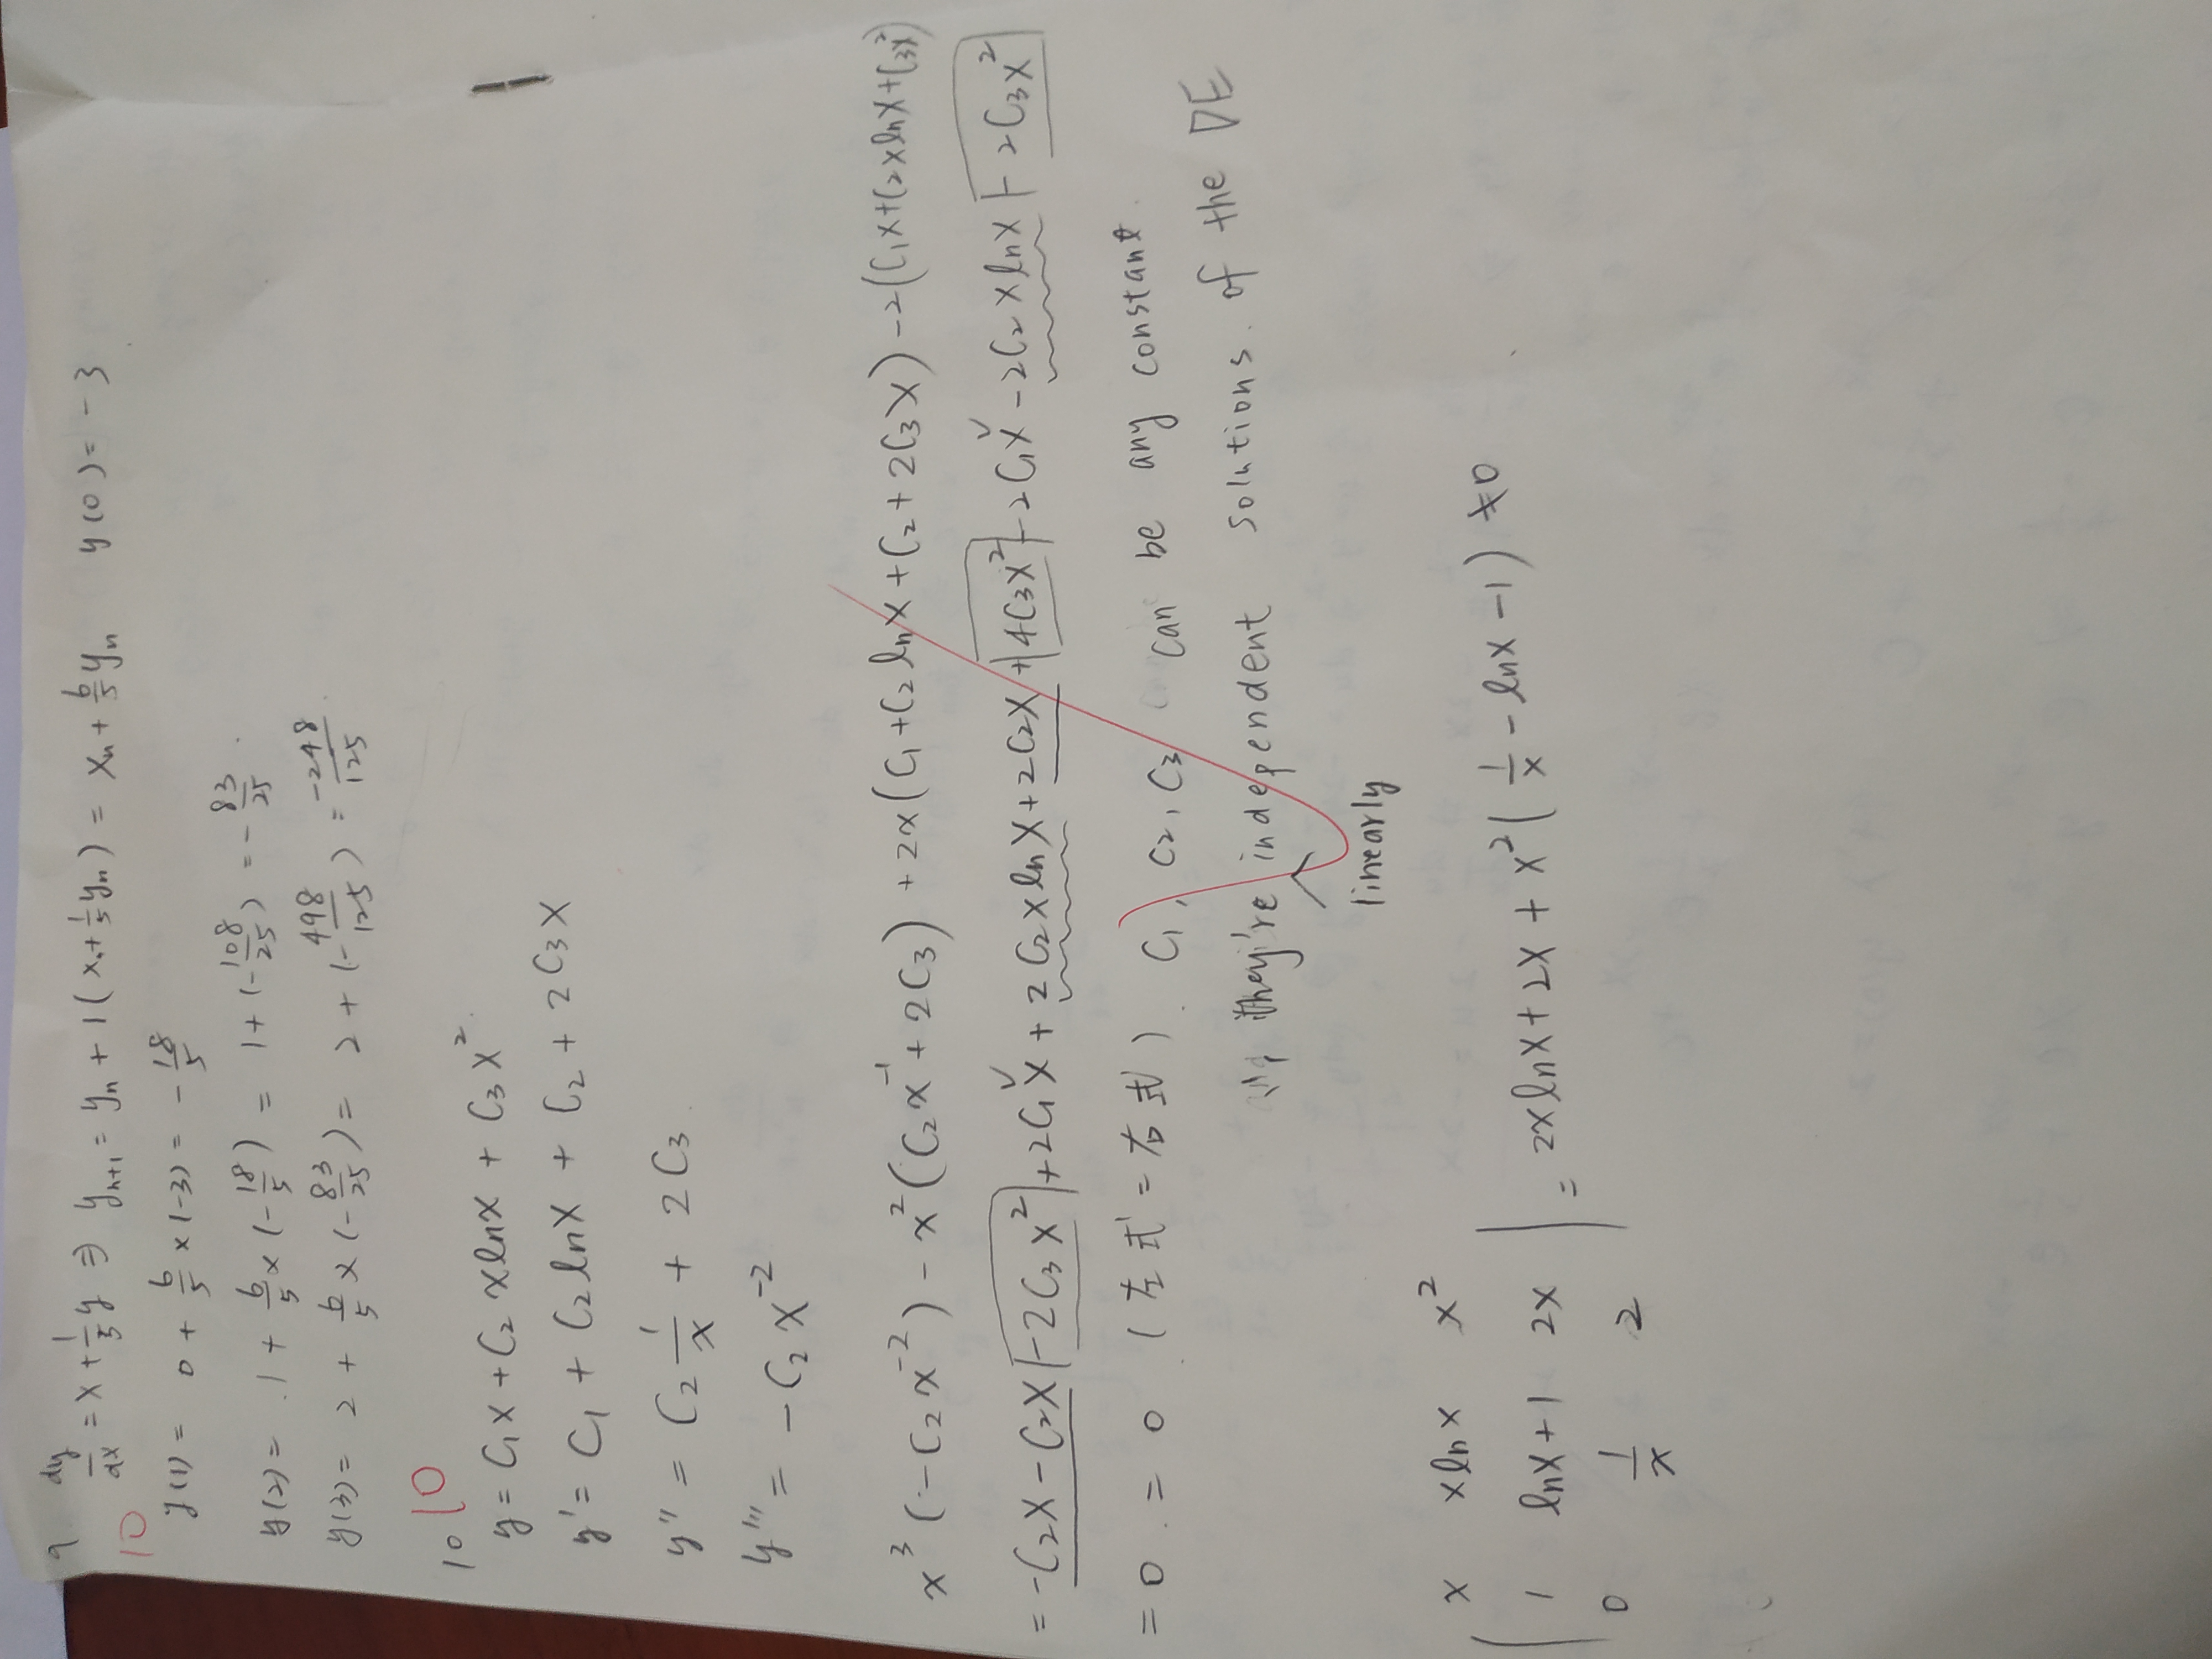 9 dy/dx = x + 1/5 y ⇒ yₙ₊₁ = yₙ + 1(xₙ + 1/5 yₙ) = xₙ + 6/5 yₙ y(0) = -3
10
y(1) = 0 + 6/5 × (-3) = -18/5
y(2) = 1 + 6/5 × (-18/5) = 1 + (-108/25) = -83/25
y(3) = 2 + 6/5 × (-83/25) = 2 + (-498/125) = -248/125
10 10
y = C₁x + C₂ xlnx + C₃x²
y' = C₁ + C₂lnx + C₂ + 2C₃x
y'' = C₂ 1/x + 2C₃
y''' = -C₂x⁻²
x³(-C₂x⁻²) - x²(C₂x⁻¹ + 2C₃) + 2x(C₁ + C₂lnx + C₂ + 2C₃x) - 2(C₁x + C₂xlnx + C₃x²)
= -C₂x - C₂x - 2C₃x² + 2C₁x + 2C₂xlnx + 2C₂x + 4C₃x² - 2C₁x - 2C₂xlnx - 2C₃x²
= 0 = 0 (左式 = 右式). C₁, C₂, C₃ can be any constant.
they're independent solutions. of the DE
linearly
x xlnx x²
| 1 lnx+1 2x | = 2xlnx + 2x + x²(1/x - lnx - 1) ≠ 0
0 1/x 2